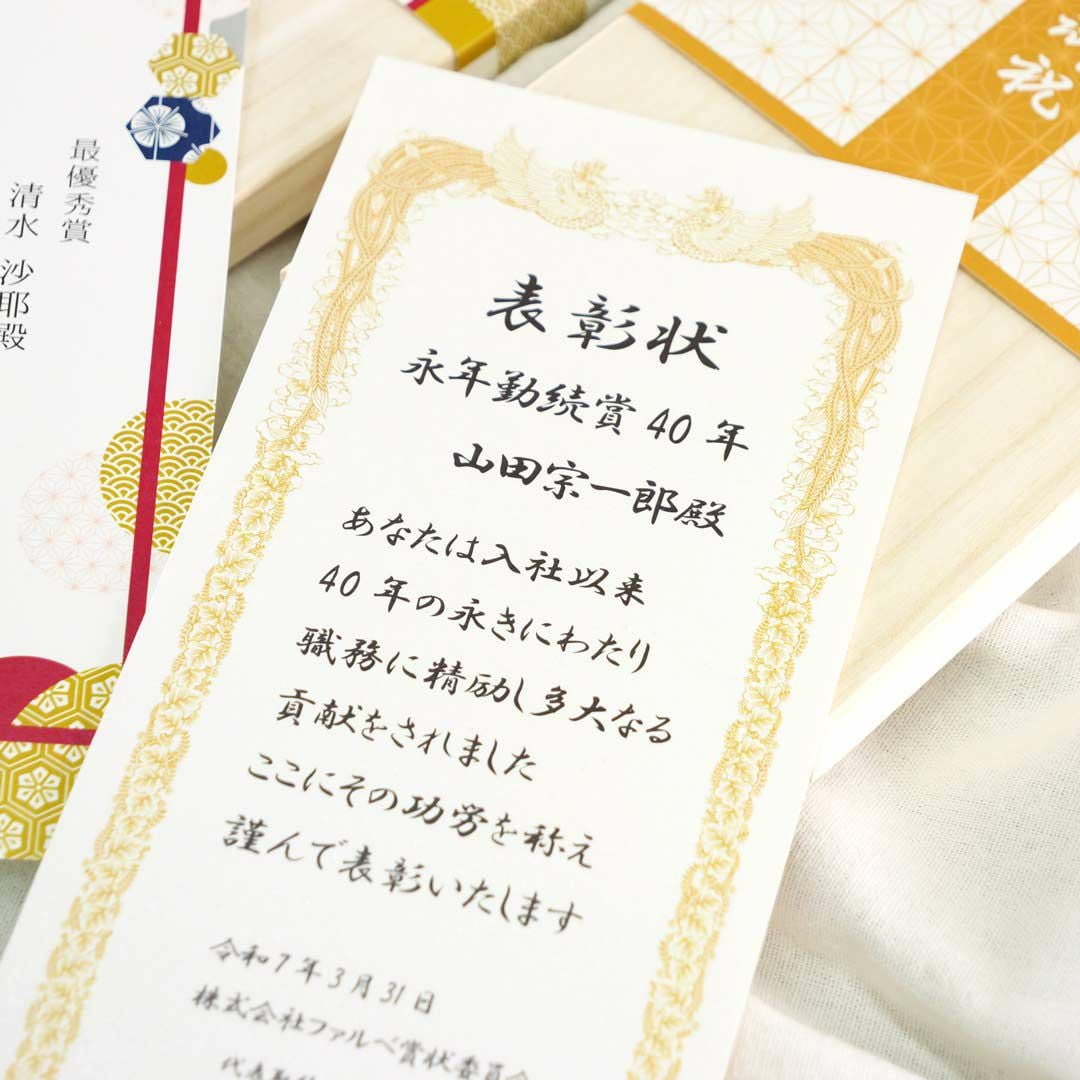 表彰状
永年勤続賞 40 年
山田宗一郎殿
あなたは入社以来
40 年の永きにわたり
職務に精励し多大なる
貢献をされました
ここにその功労を称え
謹んで表彰いたします
令和7年3月31日
株式会社ファルベ賞状委員会
代表取
最優秀賞
清水 沙耶殿
祝